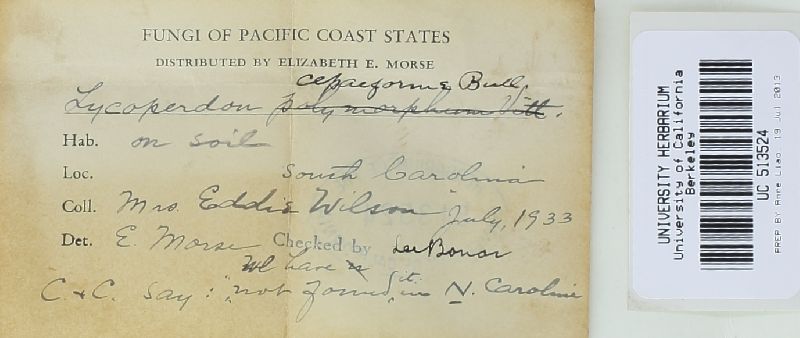 FUNGI OF PACIFIC COAST STATES
DISTRIBUTED BY ELIZABETH E. MORSE
cepaeforme Bull.
Lycoperdon polymorphum Vitt.
Hab. on soil
Loc. South Carolina
Coll. Mrs. Eddie Wilson July, 1933
Det. E. Morse Checked by Lee Bonar
We have
C. & C. say: "not found it in N. Caroline
UNIVERSITY HERBARIUM
University of California
Berkeley
UC 513524
PREP BY Anne Liao 19 Jul 2013